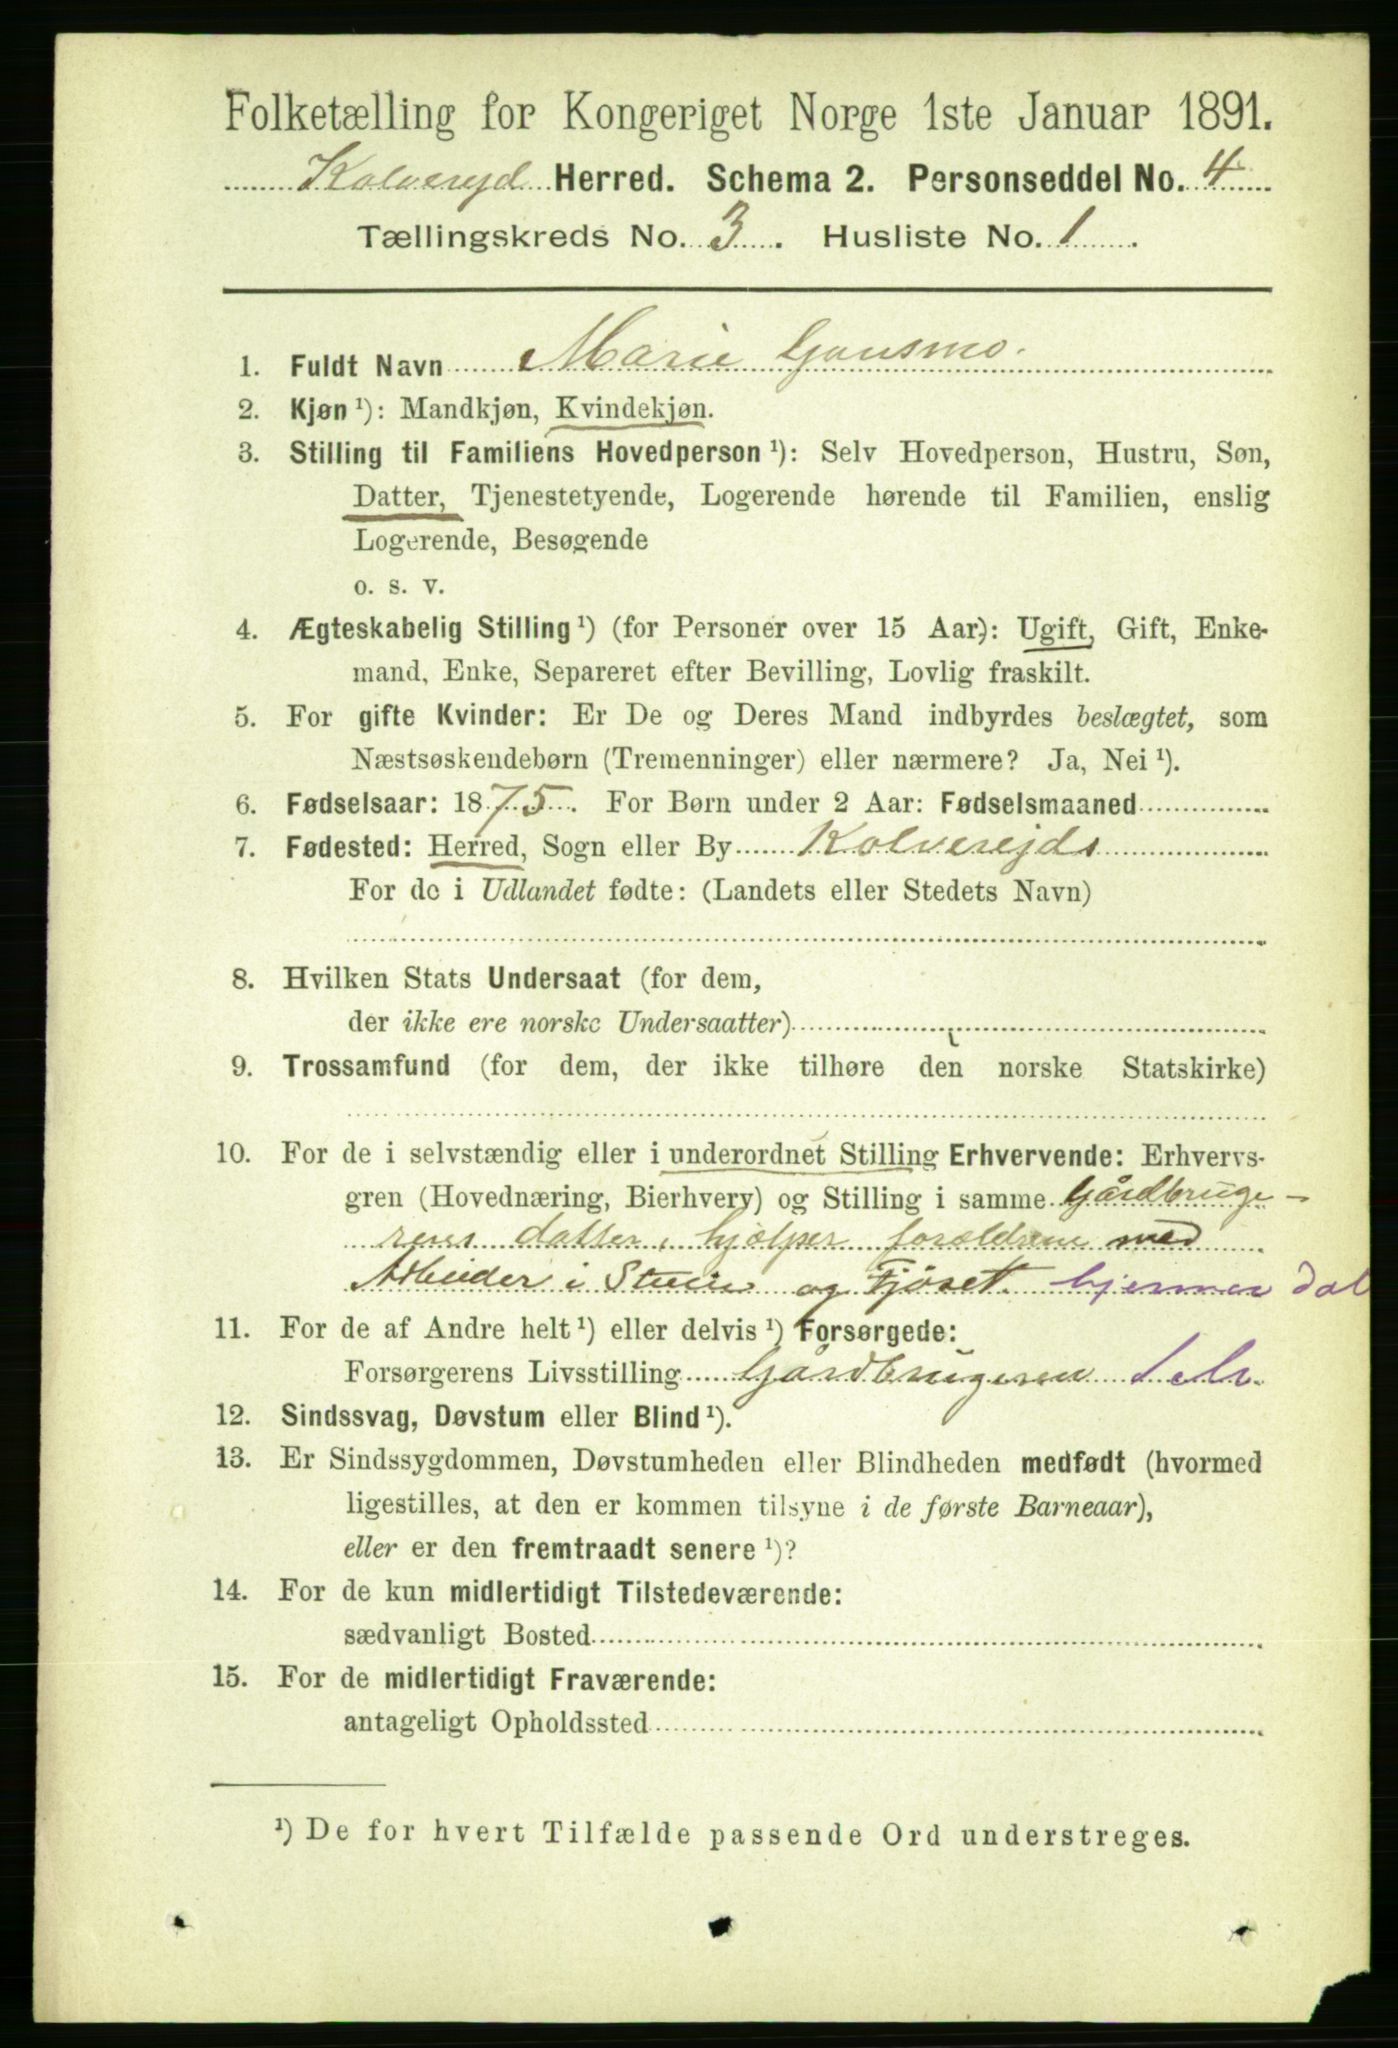 Folketælling for Kongeriget Norge 1ste Januar 1891.
Kolverejd Herred. Schema 2. Personseddel No. 4
Tællingskreds No. 3. Husliste No. 1.
1. Fuldt Navn Marie Gansmo.
2. Kjøn ¹): Mandkjøn, Kvindekjøn.
3. Stilling til Familiens Hovedperson ¹): Selv Hovedperson, Hustru, Søn,
Datter, Tjenestetyende, Logerende hørende til Familien, enslig
Logerende, Besøgende
o. s. v.
4. Ægteskabelig Stilling ¹) (for Personer over 15 Aar): Ugift, Gift, Enke-
mand, Enke, Separeret efter Bevilling, Lovlig fraskilt.
5. For gifte Kvinder: Er De og Deres Mand indbyrdes beslægtet, som
Næstsøskendebørn (Tremenninger) eller nærmere? Ja, Nei ¹).
6. Fødselsaar: 1875. For Børn under 2 Aar: Fødselsmaaned
7. Fødested: Herred, Sogn eller By Kolverejds
For de i Udlandet fødte: (Landets eller Stedets Navn)
8. Hvilken Stats Undersaat (for dem,
der ikke ere norske Undersaatter)
9. Trossamfund (for dem, der ikke tilhøre den norske Statskirke)
10. For de i selvstændig eller i underordnet Stilling Erhvervende: Erhvervs-
gren (Hovednæring, Bierhverv) og Stilling i samme Gårdbruge-
rens datter, hjælper forældrene med
Arbeider i Stuen og Fjøset. hjemmev Dat
11. For de af Andre helt ¹) eller delvis ¹) Forsørgede:
Forsørgerens Livsstilling Gårdbrugeren Selv.
12. Sindssvag, Døvstum eller Blind ¹).
13. Er Sindssygdommen, Døvstumheden eller Blindheden medfødt (hvormed
ligestilles, at den er kommen tilsyne i de første Barneaar),
eller er den fremtraadt senere ¹)?
14. For de kun midlertidigt Tilstedeværende:
sædvanligt Bosted
15. For de midlertidigt Fraværende:
antageligt Opholdssted
¹) De for hvert Tilfælde passende Ord understreges.